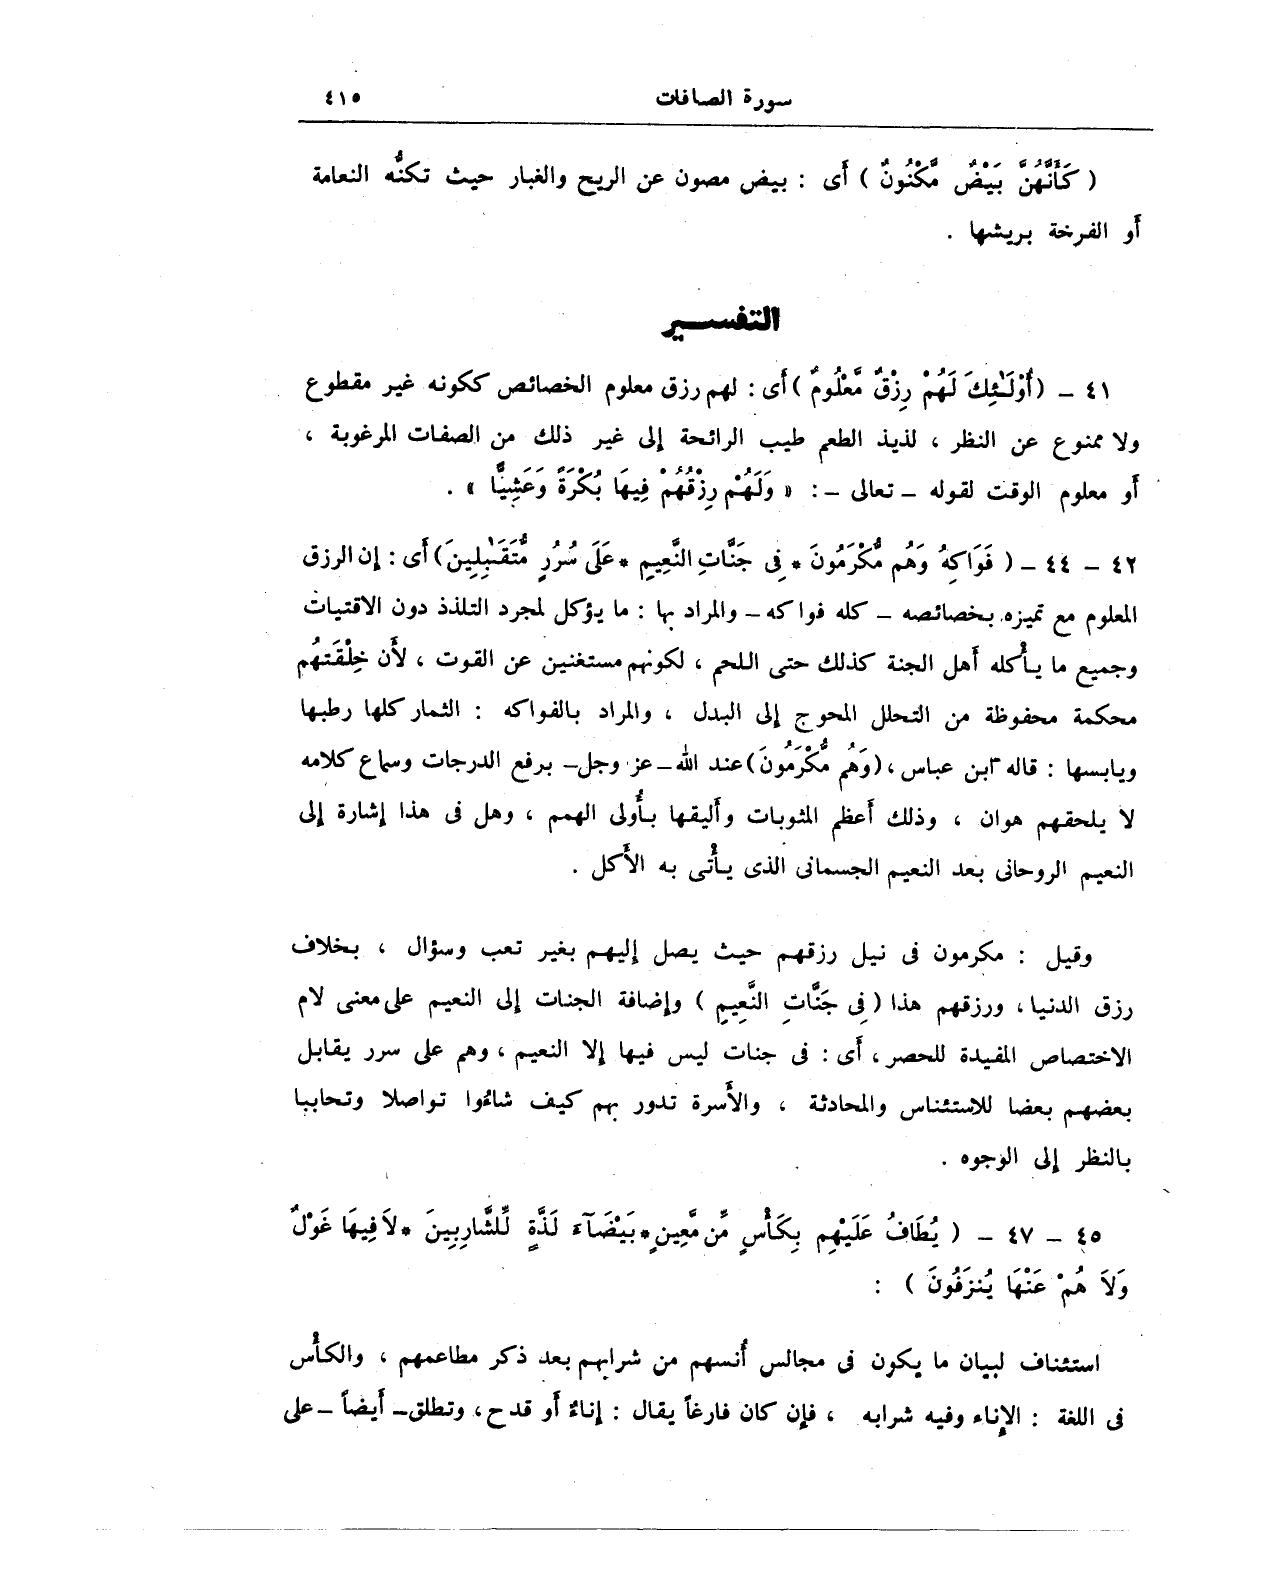 سورة الصافات ٤١٥
( كَأَنَّهُنَّ بَيْضٌ مَّكْنُونٌ ) أى : بيض مصون عن الريح والغبار حيث تكنُّه النعامة
أو الفرخة بريشها .
التفسير
٤١ - ( أُوْلَـٰئِكَ لَهُمْ رِزْقٌ مَّعْلُومٌ ) أى : لهم رزق معلوم الخصائص ككونه غير مقطوع
ولا ممنوع عن النظر ، لذيذ الطعم طيب الرائحة إلى غير ذلك من الصفات المرغوبة ،
أو معلوم الوقت لقوله - تعالى - : « وَلَهُمْ رِزْقُهُمْ فِيهَا بُكْرَةً وَعَشِيًّا » .
٤٢ - ٤٤ - ( فَوَاكِهُ وَهُم مُّكْرَمُونَ * فِى جَنَّاتِ النَّعِيمِ * عَلَى سُرُرٍ مُّتَقَـٰبِلِينَ ) أى : إن الرزق
المعلوم مع تميزه بخصائصه - كله فواكه - والمراد بها : ما يؤكل لمجرد التلذذ دون الاقتيات
وجميع ما يأكله أهل الجنة كذلك حتى اللحم ، لكونهم مستغنين عن القوت ، لأن خِلْقَتهُم
محكمة محفوظة من التحلل المحوج إلى البدل ، والمراد بالفواكه : الثمار كلها رطبها
ويابسها : قاله ابن عباس ، ( وَهُم مُّكْرَمُونَ ) عند الله - عز وجل - برفع الدرجات وسماع كلامه
لا يلحقهم هوان ، وذلك أعظم المثوبات وأليقها بأُولى الهمم ، وهل فى هذا إشارة إلى
النعيم الروحانى بعد النعيم الجسمانى الذى يأْتى به الأكل .
وقيل : مكرمون فى نيل رزقهم حيث يصل إليهم بغير تعب وسؤال ، بخلاف
رزق الدنيا ، ورزقهم هذا ( فِى جَنَّاتِ النَّعِيمِ ) وإضافة الجنات إلى النعيم على معنى لام
الاختصاص المفيدة للحصر ، أى : فى جنات ليس فيها إلا النعيم ، وهم على سرر يقابل
بعضهم بعضا للاستئناس والمحادثة ، والأسرة تدور بهم كيف شاءُوا تواصلا وتحاببا
بالنظر إلى الوجوه .
٤٥ - ٤٧ - ( يُطَافُ عَلَيْهِم بِكَأْسٍ مِّن مَّعِينٍ * بَيْضَآءَ لَذَّةٍ لِّلشَّارِبِينَ * لاَ فِيهَا غَوْلٌ
وَلاَ هُمْ عَنْهَا يُنزَفُونَ ) :
استئناف لبيان ما يكون فى مجالس أُنسهم من شرابهم بعد ذكر مطاعمهم ، والكأْس
فى اللغة : الإناء وفيه شرابه ، فإن كان فارغاً يقال : إناءٌ أو قدح ، وتطلق - أيضاً - على